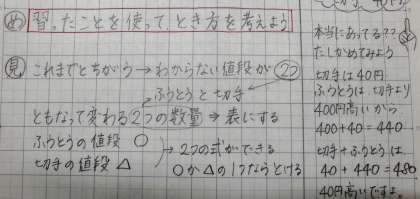 め 習ったことを使って、とき方を考えよう
見 これまでとちがう→わからない値段が2つ
ふうとうと切手
ともなって変わる2つの数量→表にする
ふうとうの値段 ○
切手の値段 △
→2つの式ができる
○か△の1つならとける
本当にあってる??
たしかめてみよう
切手は40円
ふうとうは切手より
400円高いから
400+40=440
切手+ふうとうは
40+440=480
40円高いですよ。